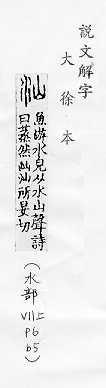 説文解字
大徐本
汕
魚游水皃从水山聲詩
曰蒸然汕汕所晏切
(水部
VII上
p6
b5)